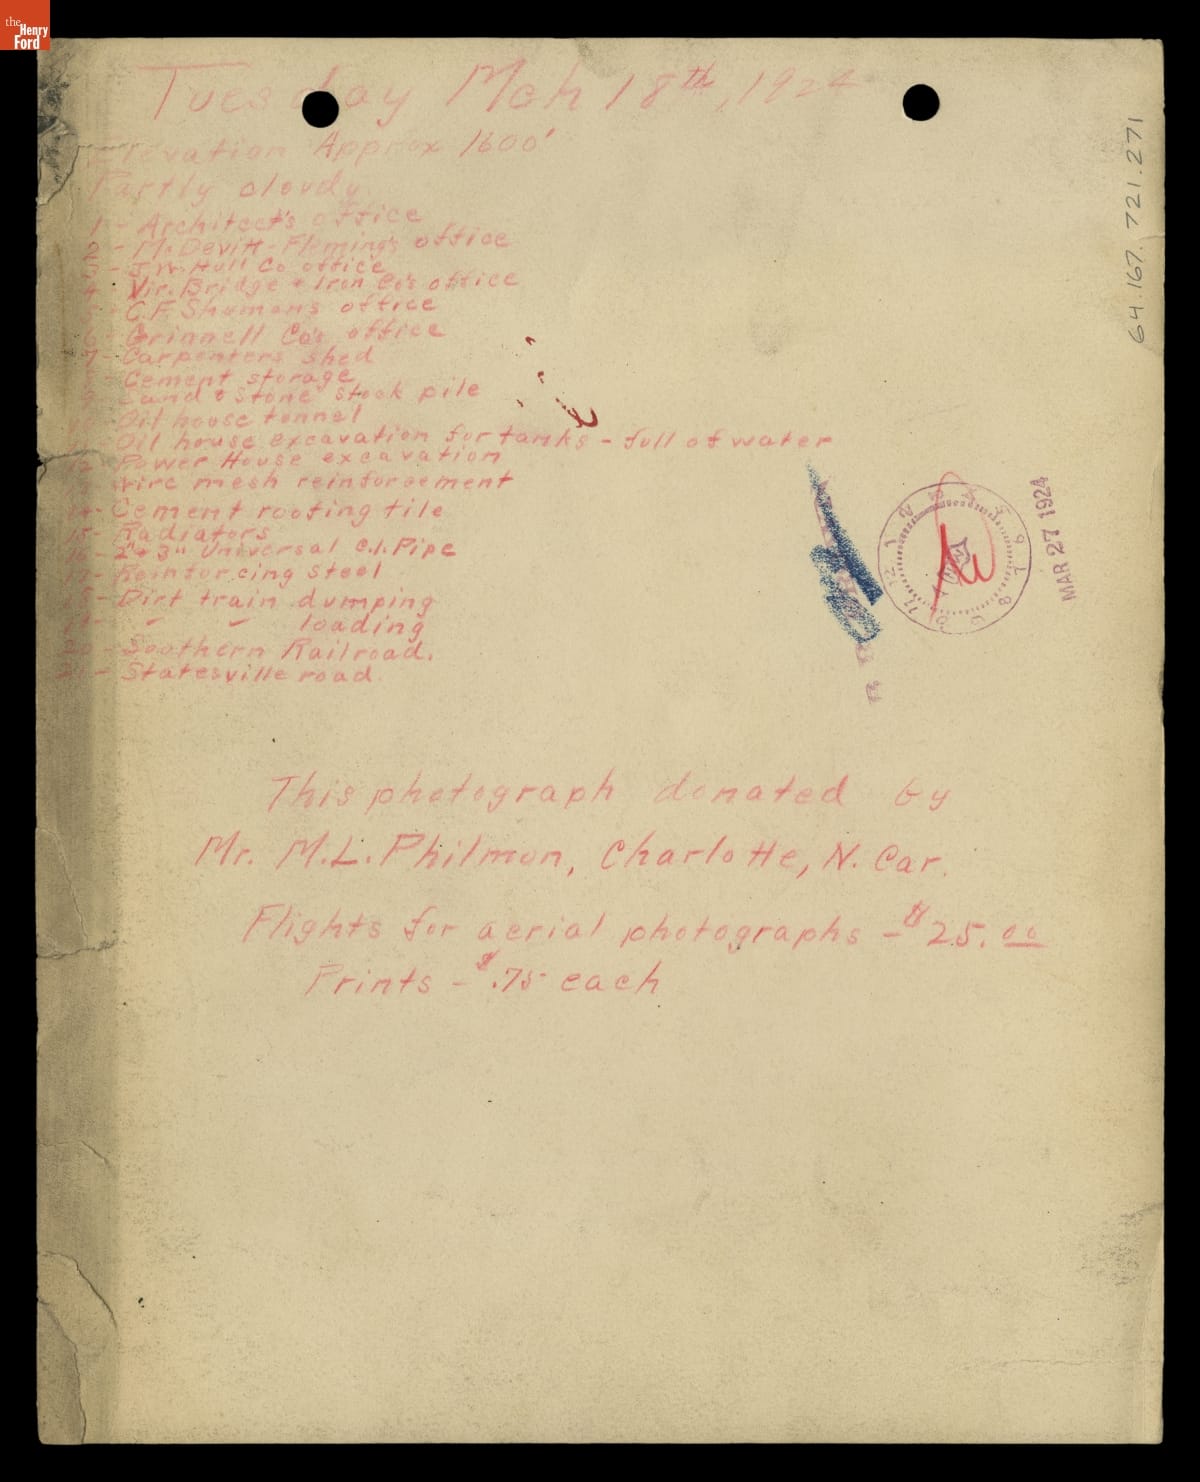 the
Henry
Ford
Tuesday Mch 18th, 1924
Elevation Approx 1600'
Partly cloudy.
1 - Architect's office
2 - McDevitt-Fleming's office
3 - J.W. Hull Co office
4 - Vir. Bridge & Iron Co's office
5 - C.F. Shuman's office
6 - Grinnell Co's office
7 - Carpenters shed
8 - Cement storage
9 - Sand & stone stock pile
10 - Oil house tunnel
11 - Oil house excavation for tanks - full of water
12 - Power House excavation
13 - Wire mesh reinforcement
14 - Cement roofing tile
15 - Radiators
16 - 2" & 3" Universal C.I. Pipe
17 - Reinforcing steel
18 - Dirt train dumping
19 - " " loading
20 - Southern Railroad.
21 - Statesville road.
This photograph donated by
Mr. M.L. Philmon, Charlotte, N. Car.
Flights for aerial photographs - $25.00
Prints - $.75 each
MAR 27 1924
64.167.721.271